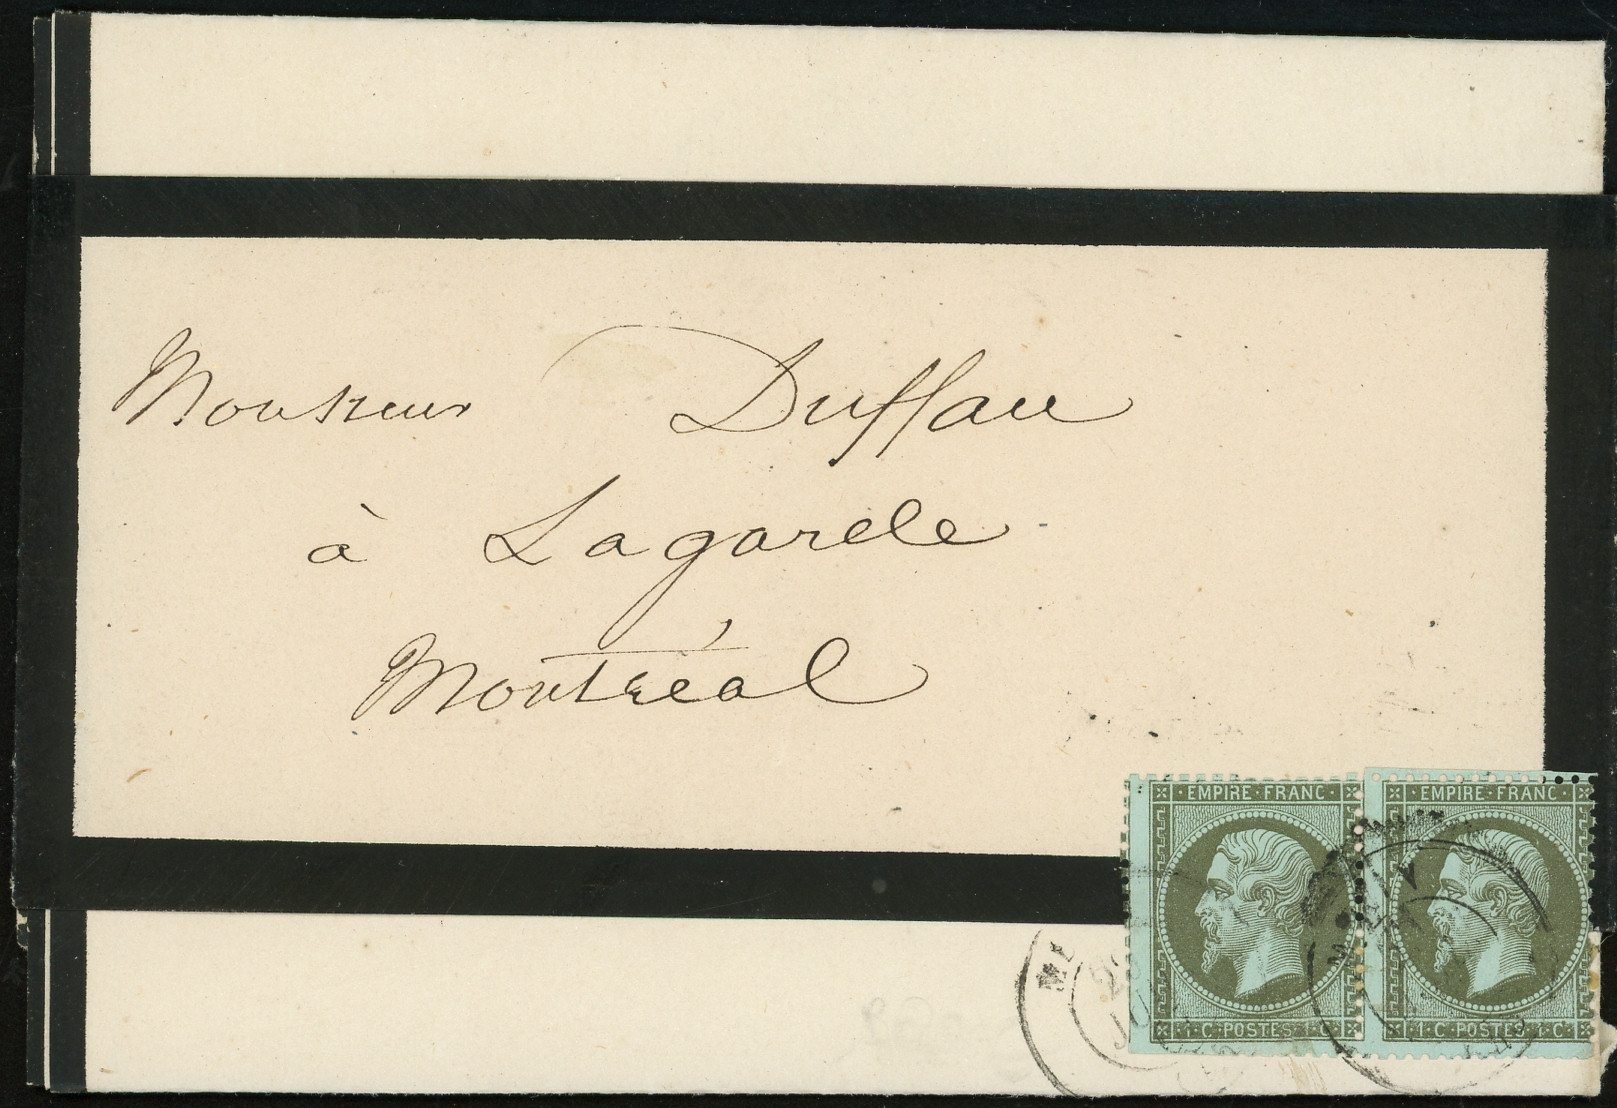 Monsieur Duffau
à Lagarde
Montréal
EMPIRE·FRANC· EMPIRE·FRANC·
·1·C·POSTES·1·C· ·1·C·POSTES·1·C·